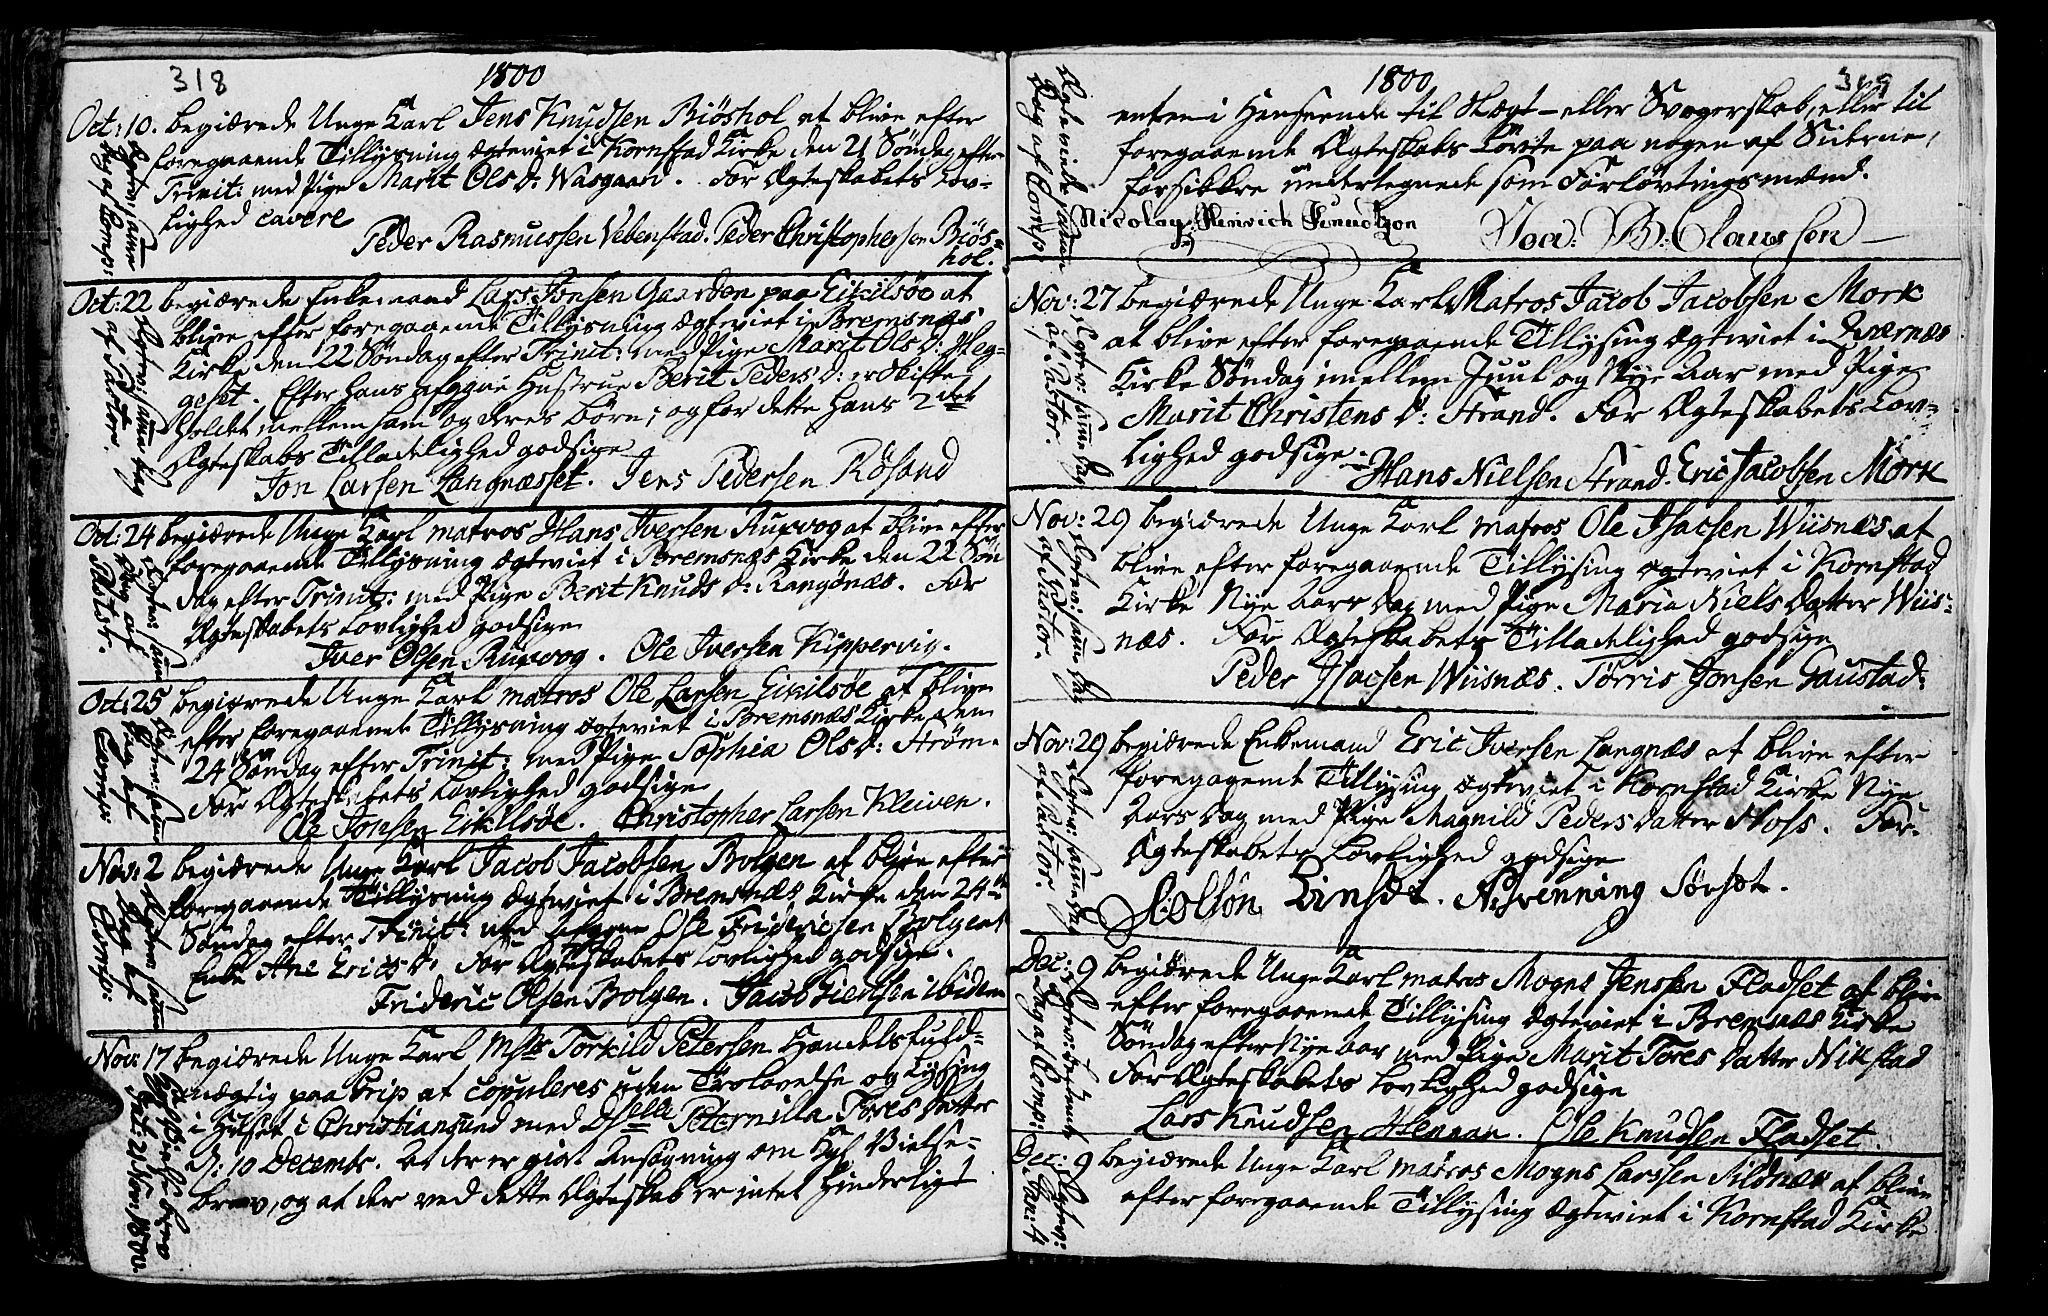 318
1800
Oct: 10. begiærede Unge Karl Jens Knudsen Biøshol at blive efter
foregaaende Tillysning ægteviet i Kornstad Kirke den 21 Søndag efter
Trinit: med Pige Marit Ols D: Wasgaard. For Ægteskabets Lov-
lighed cavere
Peder Rasmussen Vebenstad. Peder Christophersen Biøs-
hol.
Ægtev: samme
dag af Comp:
Oct: 22 begiærede Enkemand Lars Jonsen Gaarden paa Eikilsøe at
blive efter foregaaende Tillysning ægteviet i Bremsnæs
Kirke den 22 Søndag efter Trinit: med Pige Marit Ols D: Heg-
geset. Efter hans afgangne Hustrue Berit Peders D: er Skifte
holdet mellem ham og deres börn; og for dette hans 2det
Ægteskabs Tilladelighed godsige
Jon Larsen Langnæsset. Jens Pedersen Røsand
Ægtev: samme dag
af Pastor.
Oct: 24 begiærede Unge Karl matros Hans Iversen Ruxvog at blive efter
foregaaende Tillysning ægteviet i Bremsnæs Kirke den 22 Søn
dag efter Trinit: med Pige Berit Knuds D: Rangønæs. For
Ægteskabets Lovlighed godsige
Iver Olsen Ruxvog. Ole Iversen Kippervig.
Ægtev: samme
Dag af
Past:
Oct: 25 begiærede Unge Karl matros Ole Larsen Eikilsøe at blive
efter foregaaende Tillysning ægteviet i Bremsnæs Kirke den
24 Søndag efter Trinit: med Pige Sophia Ols D: Strøm.
For Ægteskabets Lovlighed godsige
Ole Jonsen Eikilsøe. Christopher Larsen Kleiven.
Ægtev: samme
Dag af
Comp:
Nov: 2 begiærede Unge Karl Jacob Jacobsen Bolgen at blive efter
foregaaende Tillysning ægteviet i Bremsnæs Kirke den 24de
Søndag efter Trinit: med afgangne Ole Fridericsen Bolgens
Enke Ane Erics D: For Ægteskabets Lovlighed godsige.
Frideric Olsen Bolgen. Jacob ibidem
Ægtev: samme
Dag af
Comp:
Nov: 17 begiærede Unge Karl Msr Torkild Petersen Handelsfuld-
mægtig paa Grip at copuleres uden Trolovelse og Lysing
i Huset i Christiansund med Dslle Peternilla Tores Datter
D: 10 Decembr. Da der er giort Ansøgning om Kgl Vielse-
brev, og at der ved dette Ægteskab er intet Hinderligt
Kgl Vielse brev
dat: 21 Nov: 1800.
1800
319
enten i Henseende til Slægt- eller Svogerskab, eller til
foregaaende Ægteskabs Löfte paa nogen af Siderne,
forsikkre undertegnede som Forlovtingsmænd.
Nicolay Heinrich Knudtzon Joa: B: Claussen
Ægteviede samme
Dag af Comp:
Nov: 27 begiærede Unge Karl Matros Jacob Jacobsen Mork
at blive efter foregaaende Tillysing ægteviet i Qværnæs
Kirke Søndag imellem Juul og Nye Aar med Pige
Marit Christens D: Strand. For Ægteskabets Lov-
lighed godsige
Hans Nielsen Strand. Eric Jacobsen Mork
Ægtev: samme dag
af Pastor.
Nov: 29 begiærede Unge Karl matros Ole Isacsen Wiisnæs at
blive efter foregaaende Tillysing ægteviet i Kornstad
Kirke Nye Aars Dag med Pige Maria Niels Datter Wiis-
næs. For Ægteskabets Tilladelighed godsige
Peder Isacsen Wiisnæs. Tørris Jonsen Gaustad.
Ægtev: samme Dag
af Pastor.
Nov: 29 begiærede Enkemand Eric Iversen Langnæs at blive efter
foregaaende Tillysing ægteviet i Kornstad Kirke Nye
Aars Dag med Pige Magnild Peders Datter Hoss. For
Ægteskabets Lovlighed godsige
Einset. N: Svenning Sørset.
Ægtev: samme Dag
af Pastor.
Dec: 9 begiærede Unge Karl matros Mogns Jenssen Fladset at blive
efter foregaaende Tillysing ægteviet i Bremsnæs Kirke
Søndag efter Nye Aar med Pige Marit Tores Datter Nikstad
For Ægteskabets Lovlighed godsige
Lars Knudsen Hennan. Ole Knudsen Fladset.
Ægtev: bestemte
Dag af Comp:
Dec: 9 begiærede Unge Karl matros Mogns Larssen Sildnæs at blive
efter foregaaende Tillysing ægteviet i Kornstad Kirke
Ægtev:
d: Jan: 4